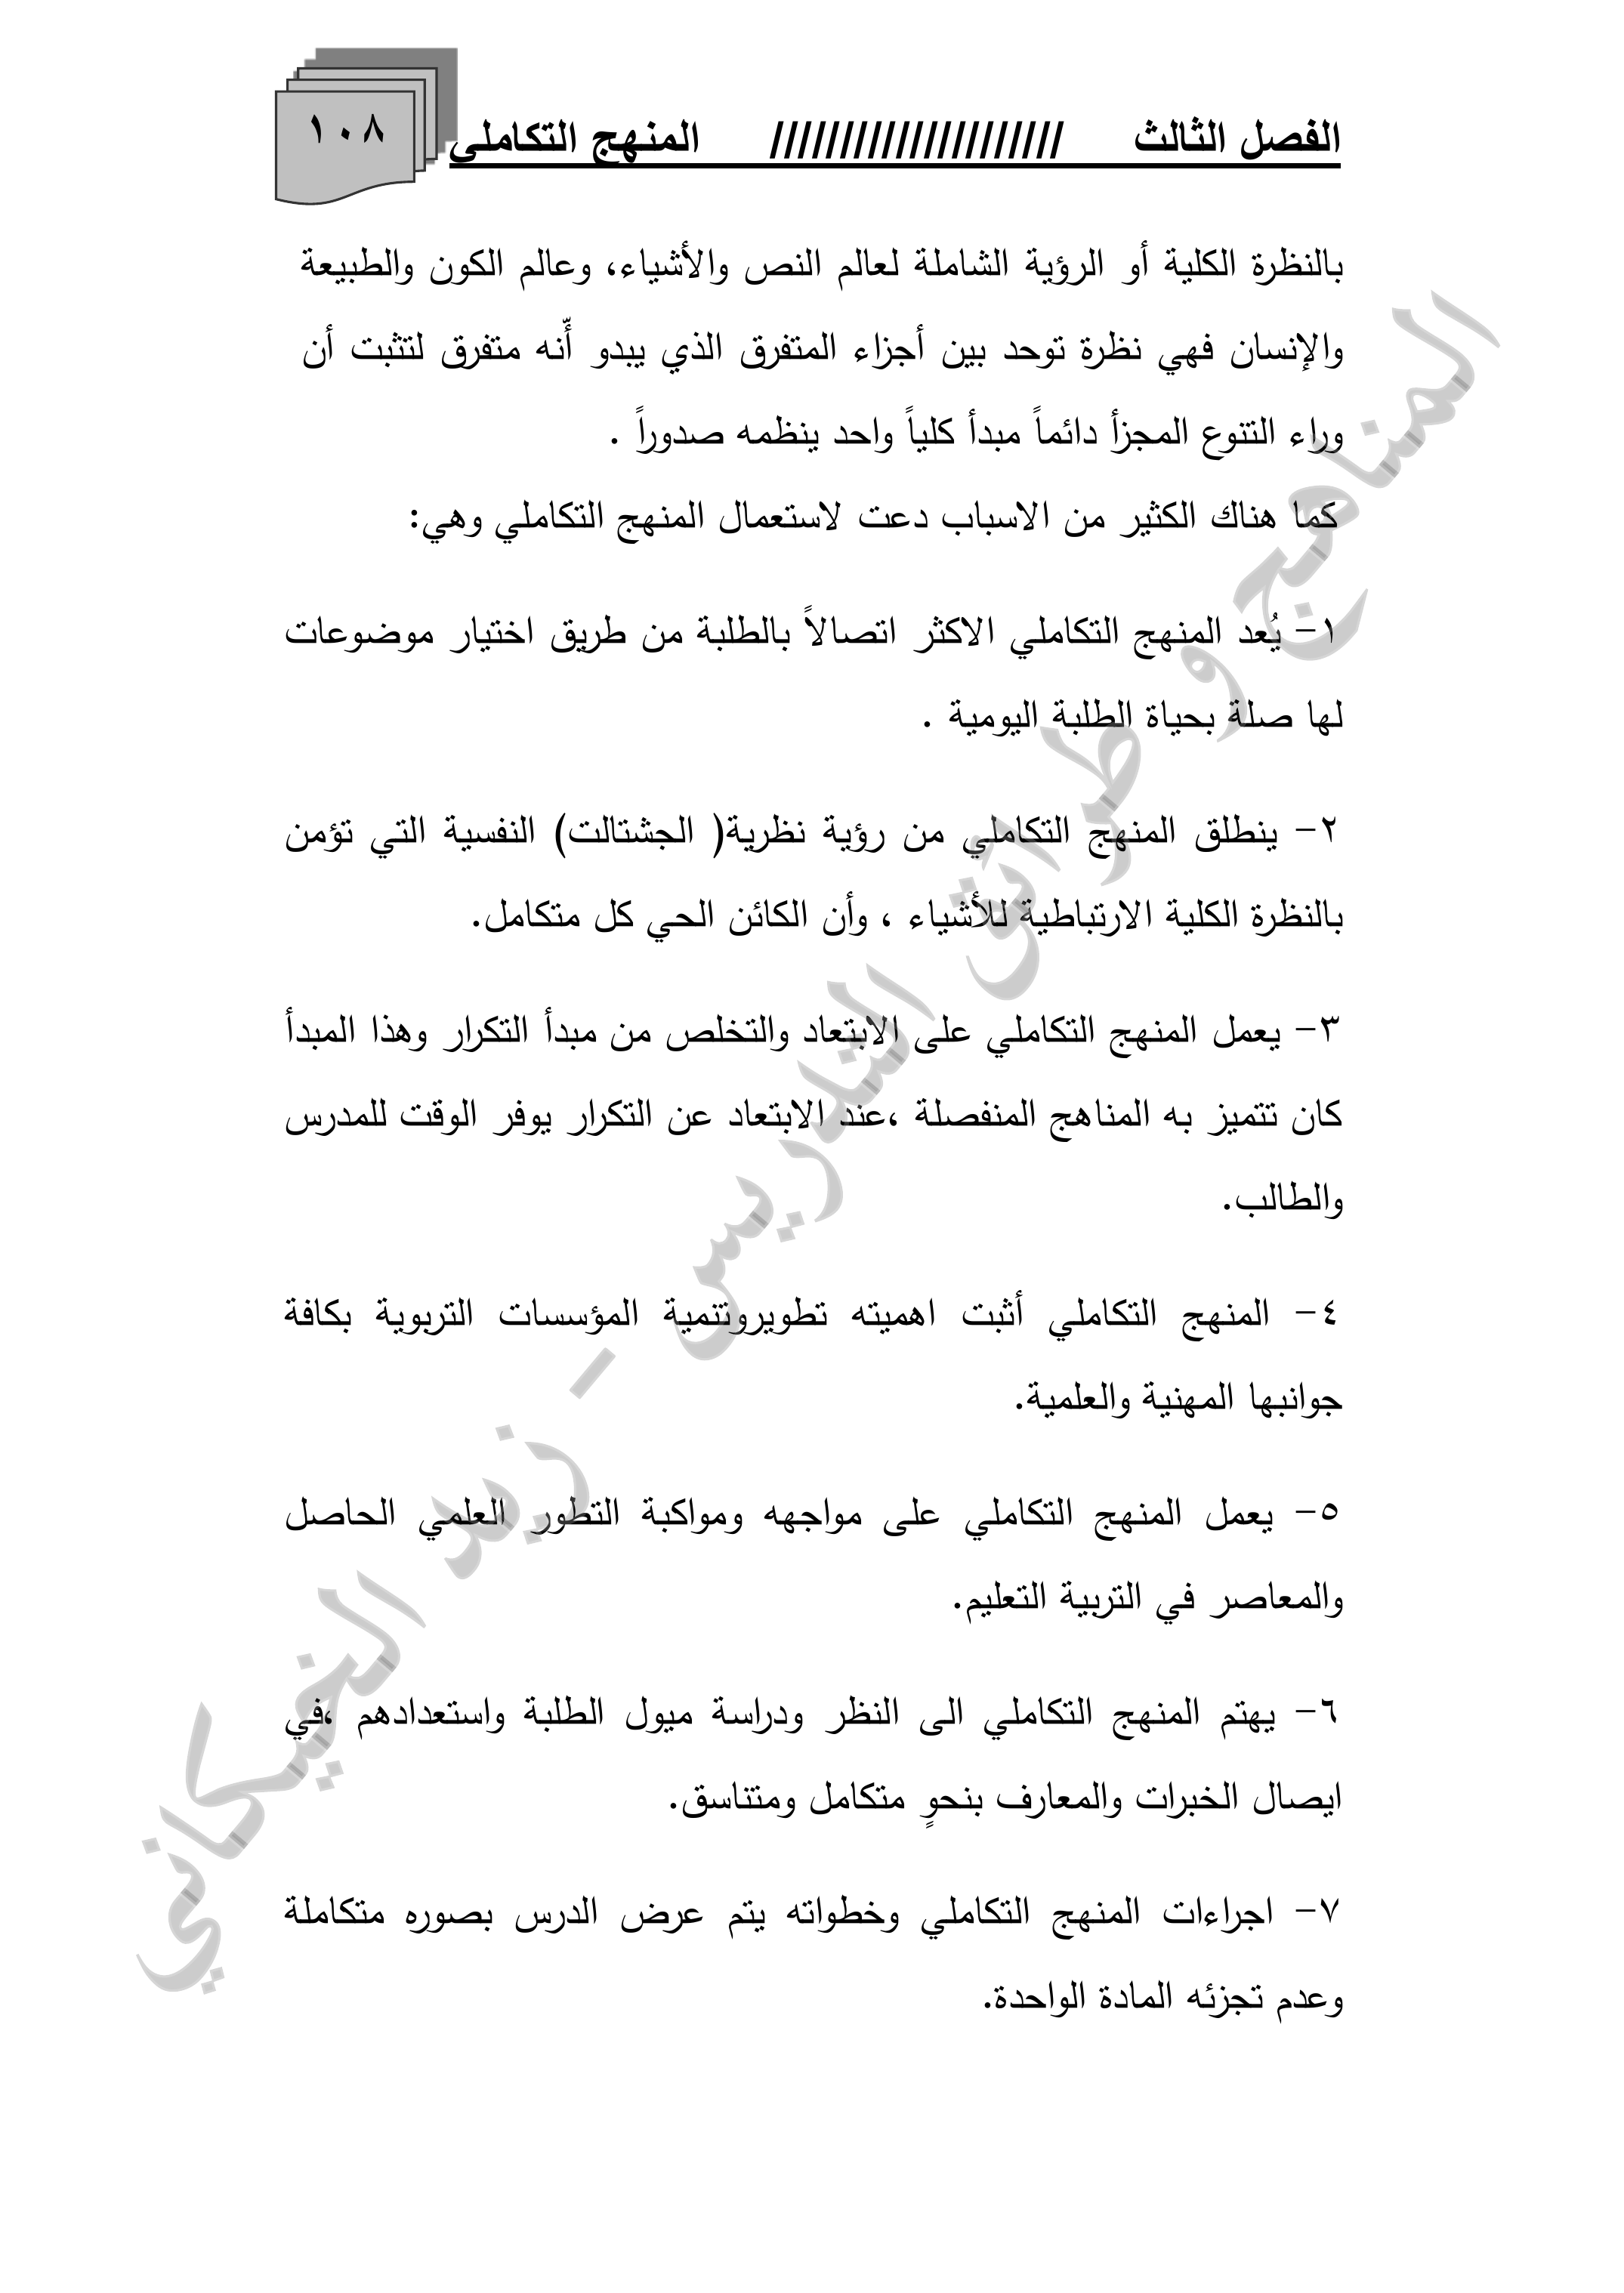 الفصل الثالث ///////////////////// المنهج التكاملي ١٠٨
بالنظرة الكلية أو الرؤية الشاملة لعالم النص والأشياء، وعالم الكون والطبيعة
والإنسان فهي نظرة توحد بين أجزاء المتفرق الذي يبدو أّنه متفرق لتثبت أن
وراء التنوع المجزأ دائماً مبدأ كلياً واحد ينظمه صدوراً .
كما هناك الكثير من الاسباب دعت لاستعمال المنهج التكاملي وهي:
١- يُعد المنهج التكاملي الاكثر اتصالاً بالطلبة من طريق اختيار موضوعات
لها صلة بحياة الطلبة اليومية .
٢- ينطلق المنهج التكاملي من رؤية نظرية( الجشتالت) النفسية التي تؤمن
بالنظرة الكلية الارتباطية للأشياء ، وأن الكائن الحي كل متكامل.
٣- يعمل المنهج التكاملي على الابتعاد والتخلص من مبدأ التكرار وهذا المبدأ
كان تتميز به المناهج المنفصلة ،عند الابتعاد عن التكرار يوفر الوقت للمدرس
والطالب.
٤- المنهج التكاملي أثبت اهميته تطويروتنمية المؤسسات التربوية بكافة
جوانبها المهنية والعلمية.
٥- يعمل المنهج التكاملي على مواجهه ومواكبة التطور العلمي الحاصل
والمعاصر في التربية التعليم.
٦- يهتم المنهج التكاملي الى النظر ودراسة ميول الطلبة واستعدادهم ،في
ايصال الخبرات والمعارف بنحوٍ متكامل ومتناسق.
٧- اجراءات المنهج التكاملي وخطواته يتم عرض الدرس بصوره متكاملة
وعدم تجزئه المادة الواحدة.
المناهج و طرائق التدريس - زيد الخيكاني